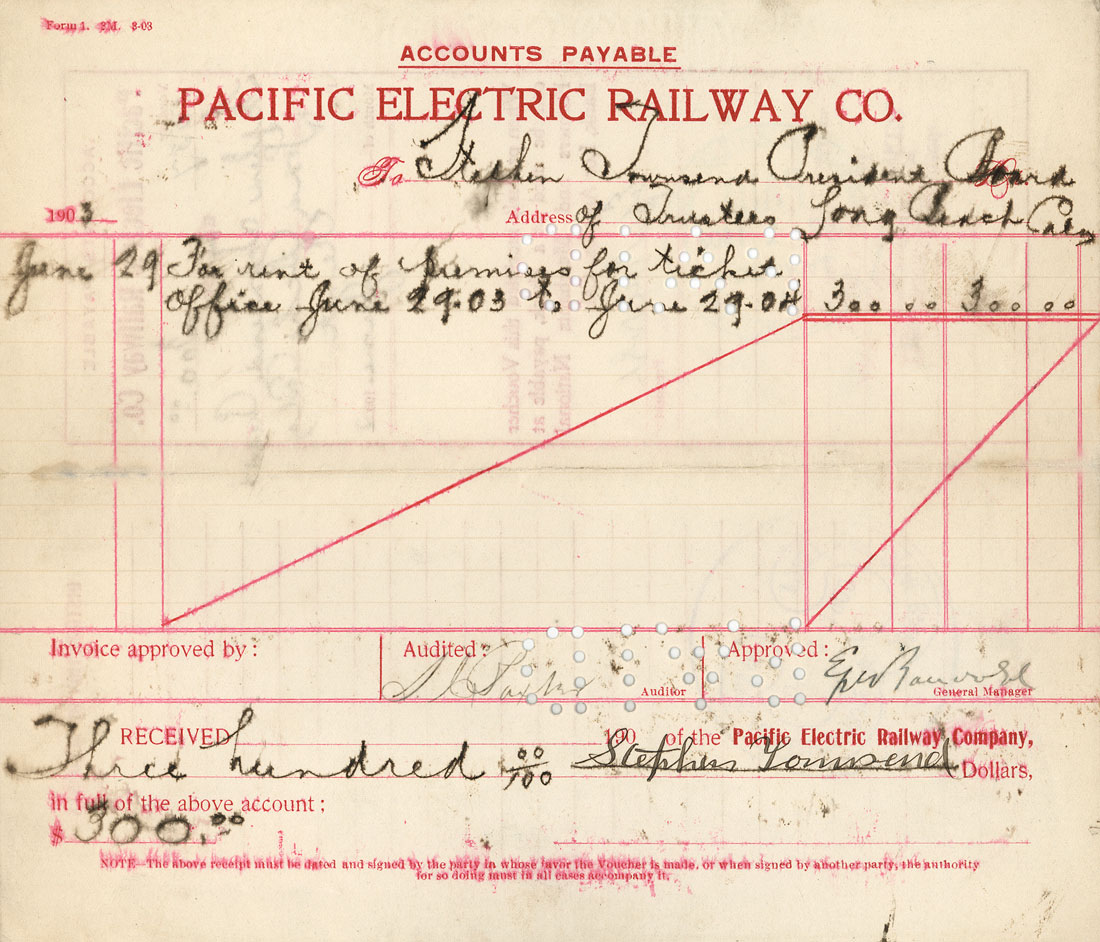 Form 1. 2M. 8-03
ACCOUNTS PAYABLE
PACIFIC ELECTRIC RAILWAY CO.
To Stephen Townsend President Board
1903
Address of Trustees Long Beach Cal
June 29 For rent of premises for ticket
office June 29-03 to June 29-04 300 00 300 00
Invoice approved by: Audited: Approved:
Auditor General Manager
RECEIVED 190 of the Pacific Electric Railway Company,
Three hundred 00/100 Stephen Townsend Dollars,
in full of the above account;
$ 300.00
NOTE—The above receipt must be dated and signed by the party in whose favor the Voucher is made, or when signed by another party, the authority
for so doing must in all cases accompany it.